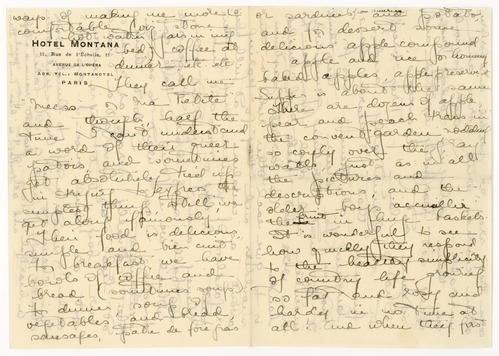 ways of making me more
comfortable, for store
hot water jars in my
bed, coffee at
dinner etc etc
They call me
HOTEL MONTANA
11, Rue de l'Echelle, 11
AVENUE DE L'OPÉRA
ADR. TÉL.: MONTANOTEL
PARIS
"Mees" or "Ma Petite"
and though half the
time I can't understand
a word of their queer
patois and sometimes
get absolutely tied up
in trying to express the
simplest thing still, we
get along famously.
Then food is delicious
simple and bien cuit
to breakfast we have
bowls of coffee and
bread (sometimes soup)
to dinner, soup of
vegetables and bread,
sausages, pate de foie gras
or sardines and potatoes
and for dessert some
delicious apple compound
apple and rice for
baked apples, apple preserve
Supper is about the same
There are dozens of apple
pear and peach trees in
the convent garden nodding
so coyly over the gray
walls just as in all
the pictures and
descriptions, and the
older boys
the fruit in huge baskets
It is wonderful to see
how quickly they respond
to the healthy simplicity
of country life growing
so fat and rosy and
hardy in no time at
all. and when they first